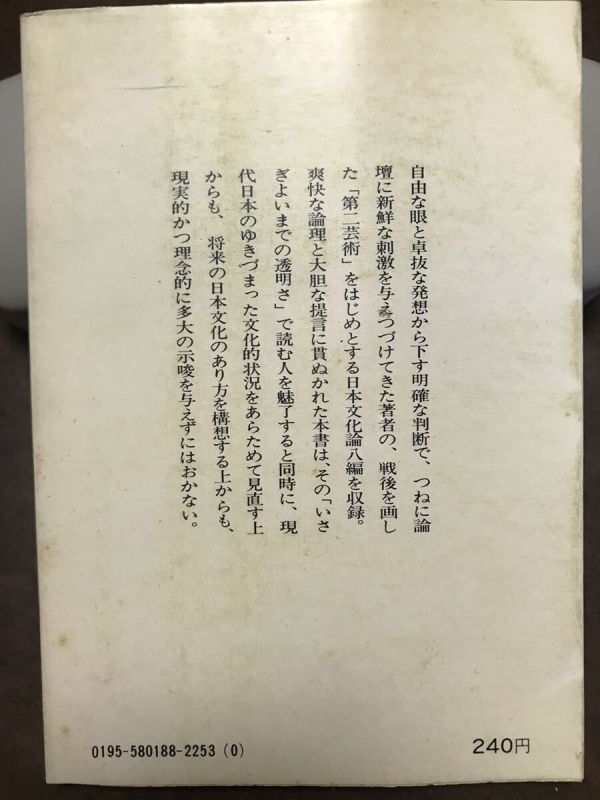 自由な眼と卓抜な発想から下す明確な判断で、つねに論
壇に新鮮な刺激を与えつづけてきた著者の、戦後を画し
た「第二芸術」をはじめとする日本文化論八編を収録。
爽快な論理と大胆な提言に貫ぬかれた本書は、その「いさ
ぎよいまでの透明さ」で読む人を魅了すると同時に、現
代日本のゆきづまった文化的状況をあらためて見直す上
からも、将来の日本文化のあり方を構想する上からも、
現実的かつ理念的に多大の示唆を与えずにはおかない。
0195-580188-2253 (0)
240円